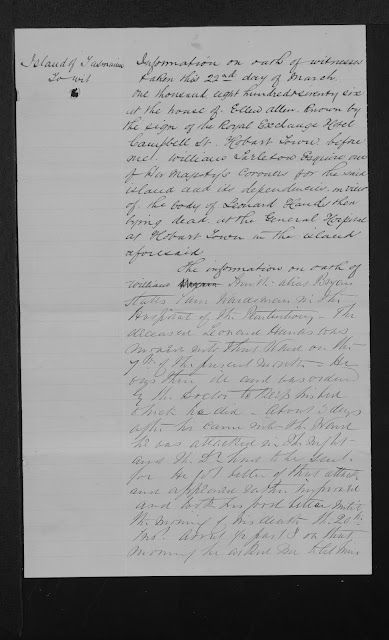 Island of Tasmania
To wit
Information on oath of witnesses
taken this 22nd day of March
one thousand eight hundred seventy six
at the house of Ellen Allen known by
the sign of the Royal Exchange Hotel
Campbell St. Hobart Town before
me William Tarleton Esquire one
of Her Majesty's Coroners for the said
island and its dependencies in view
of the body of Leonard Hands then
lying dead at the General Hospital
at Hobart Town in the island
aforesaid
The information on oath of
William Smith alias Rogers
States I am Wardsman in the
Hospital of the
deceased Leonard Hands was
into that Ward on the
7th of the present month - He
was then ill and was ordered
by the Doctor to keep his bed
which he did - About 3 days
after he came into the Ward
he was attacked in the night
and the Dr had to be sent
for He got better of that attack
and appeared rather improved
and took his food better until
the morning of his death the 20th
Inst. About ½ past 1 on that
morning he asked me to let him